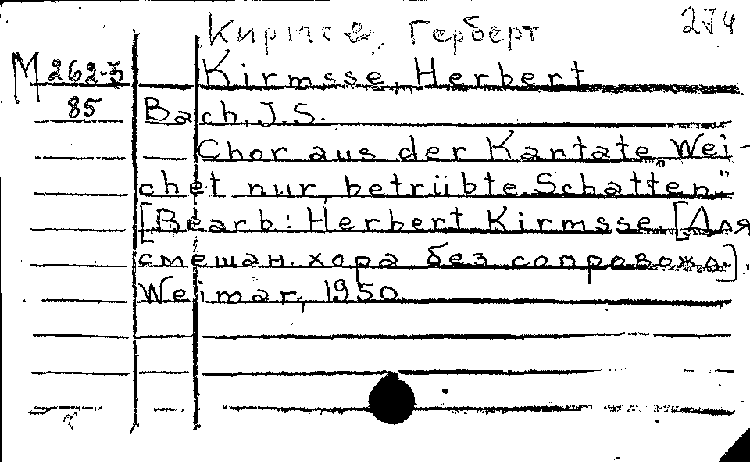 Кирмсе, Герберт 274
M 262-3 Kirmsse, Herbert
85 Bach, J.S.
Chor aus der Kantate „Wei-
chet nur, betrübte Schatten."
[Bearb: Herbert Kirmsse. [Для
смешан. хора без сопровожд.].
Weimar, 1950